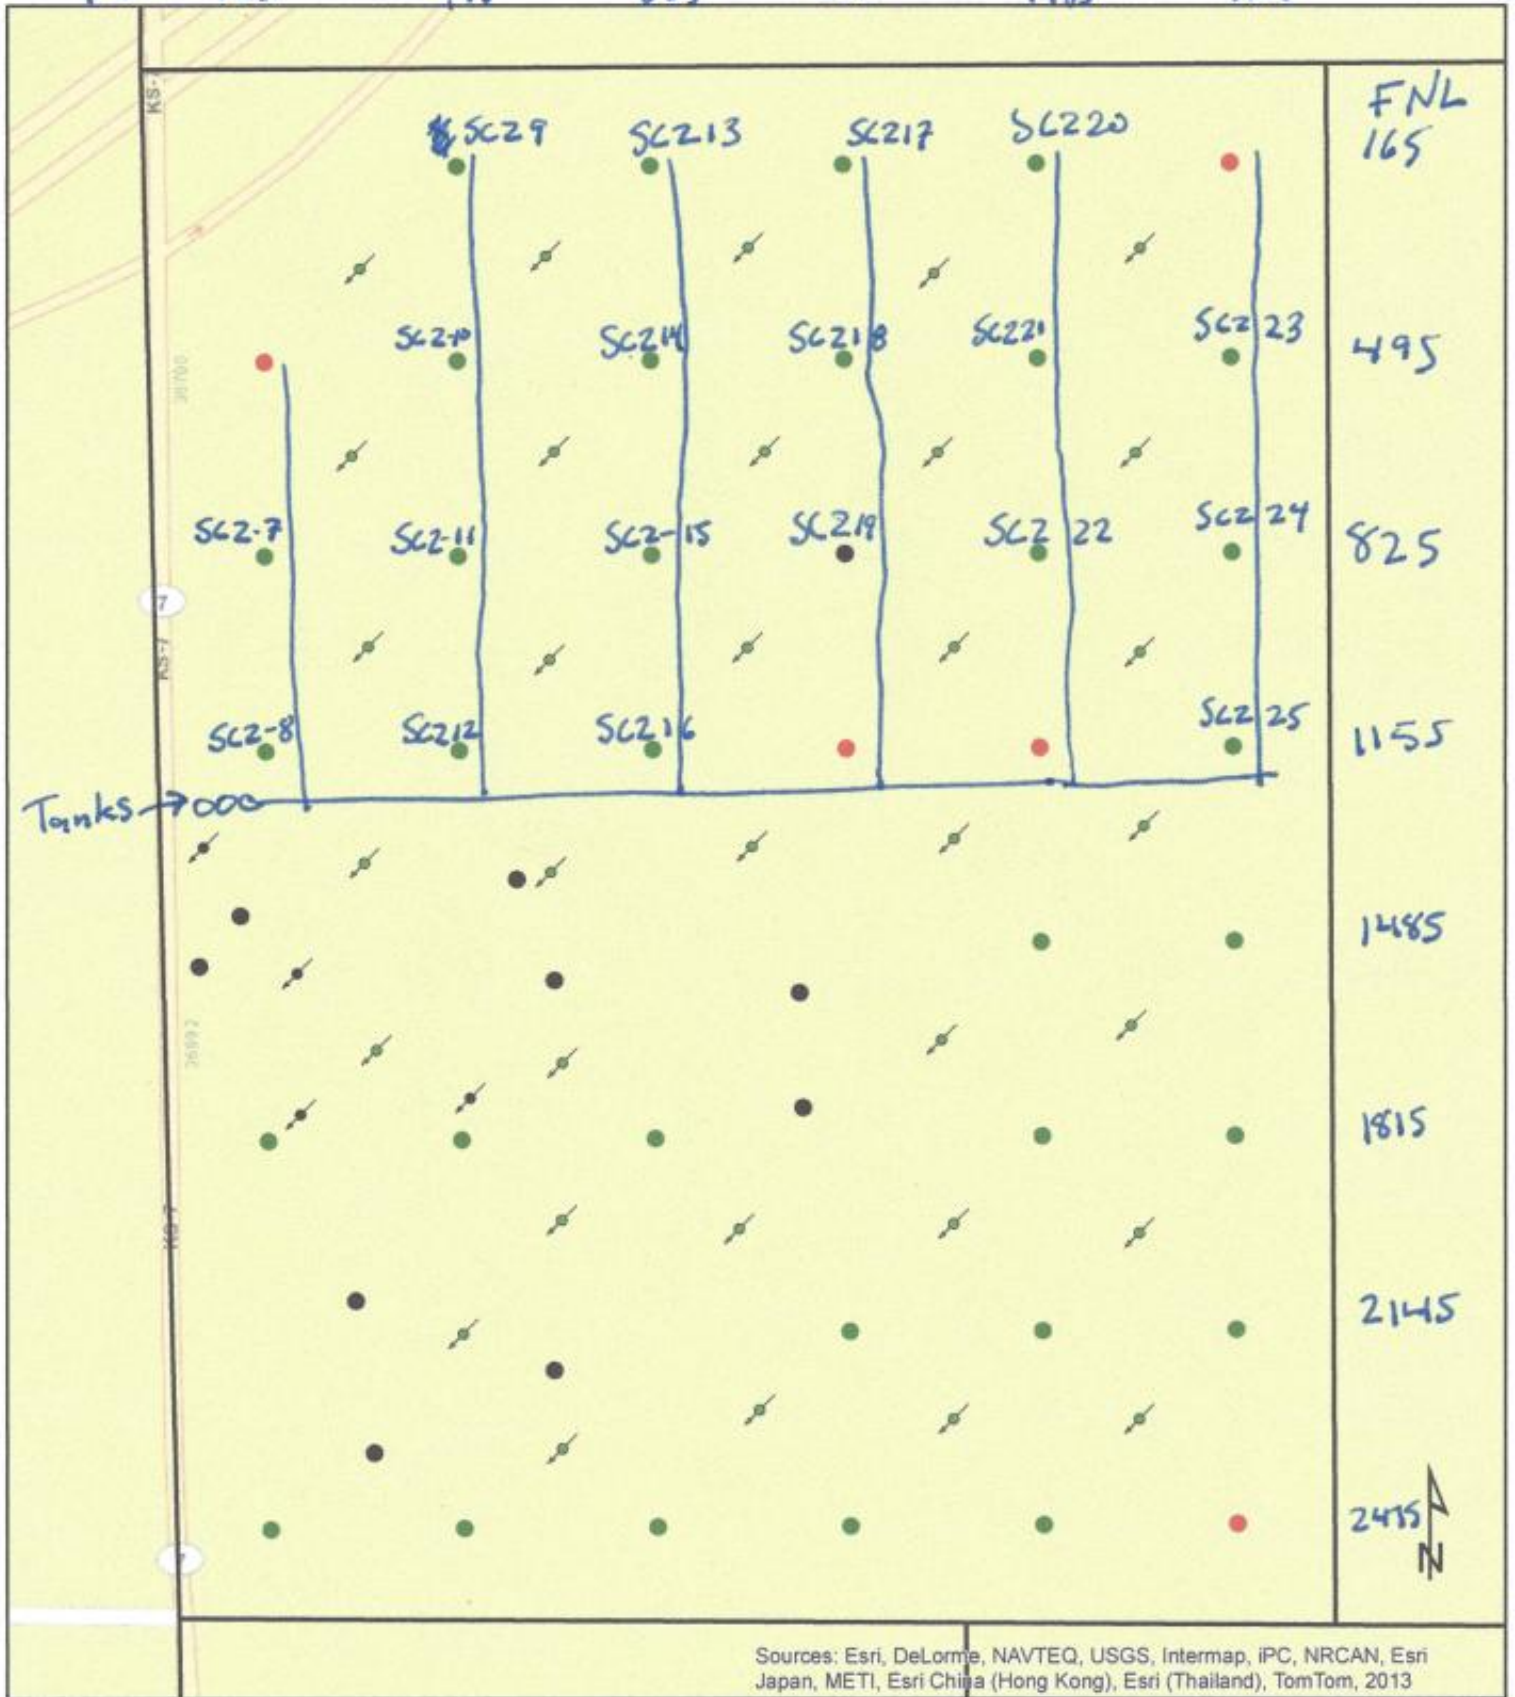 FNL
SCZ9 SCZ13 SCZ17 SCZ20 165
KS-
SCZ-10 SCZ14 SCZ18 SCZ21 SCZ 23 495
SCZ-7 SCZ-11 SCZ-15 SCZ19 SCZ 22 SCZ 24 825
7
KS-7
SCZ-8 SCZ12 SCZ16 SCZ 25 1155
Tanks → 000
1485
1815
KS-7
2145
2475
N
7
Sources: Esri, DeLorme, NAVTEQ, USGS, Intermap, iPC, NRCAN, Esri
Japan, METI, Esri China (Hong Kong), Esri (Thailand), TomTom, 2013